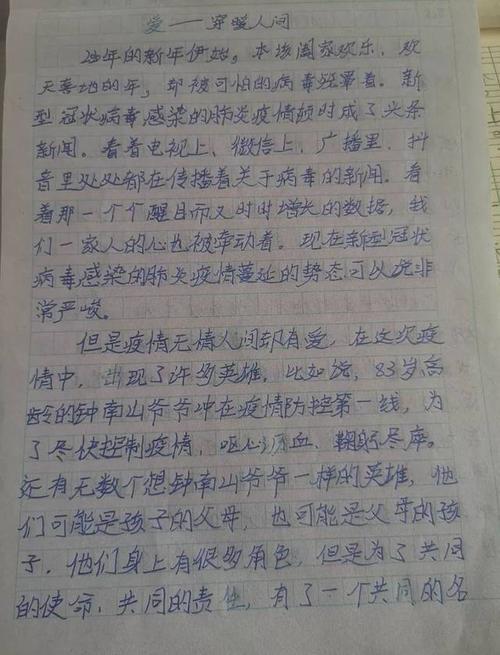 爱——穿暖人间
今年的新年伊始。本该阖家欢乐、欢
天喜地的年，却被可怕的病毒笼罩着。新
型冠状病毒感染的肺炎疫情顿时成了头条
新闻。看着电视上、微信上、广播里、抖
音里处处都在传播着关于病毒的新闻。看
着那一个个醒目而又时时增长的数据，我
们一家人的心也被牵动着。现在新型冠状
病毒感染的肺炎疫情蔓延的势态可以说非
常严峻。
但是疫情无情人间却有爱，在这次疫
情中，出现了许多英雄。比如说，83岁高
龄的钟南山爷爷冲在疫情防控第一线，为
了尽快控制疫情，呕心沥血、鞠躬尽瘁。
还有无数个想钟南山爷爷一样的英雄，他
们可能是孩子的父母，也可能是父母的孩
子，他们身上有很多角色，但是为了共同
的使命，共同的责任，有了一个共同的名